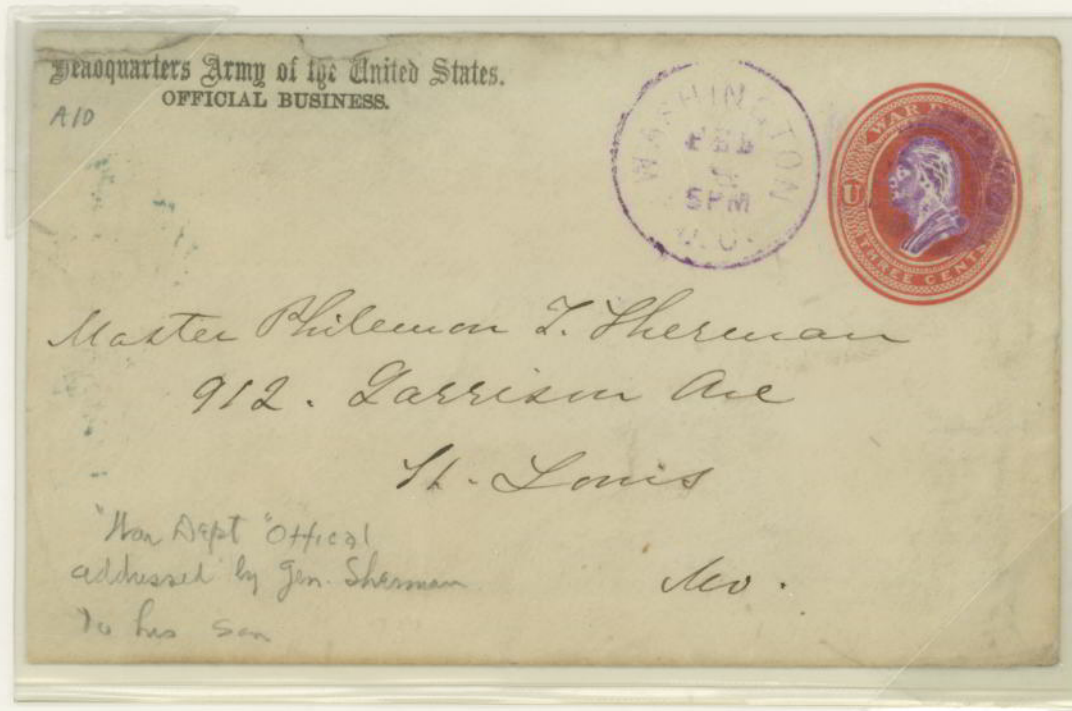 Headquarters Army of the United States.
OFFICIAL BUSINESS.
A10
WASHINGTON
FEB
5PM
D.C.
WAR D
U
THREE CENTS
Master Philemon T. Sherman
912. Garrison Ave
St. Louis
Mo.
"War Dept" Offical
addressed by Gen. Sherman
to his son